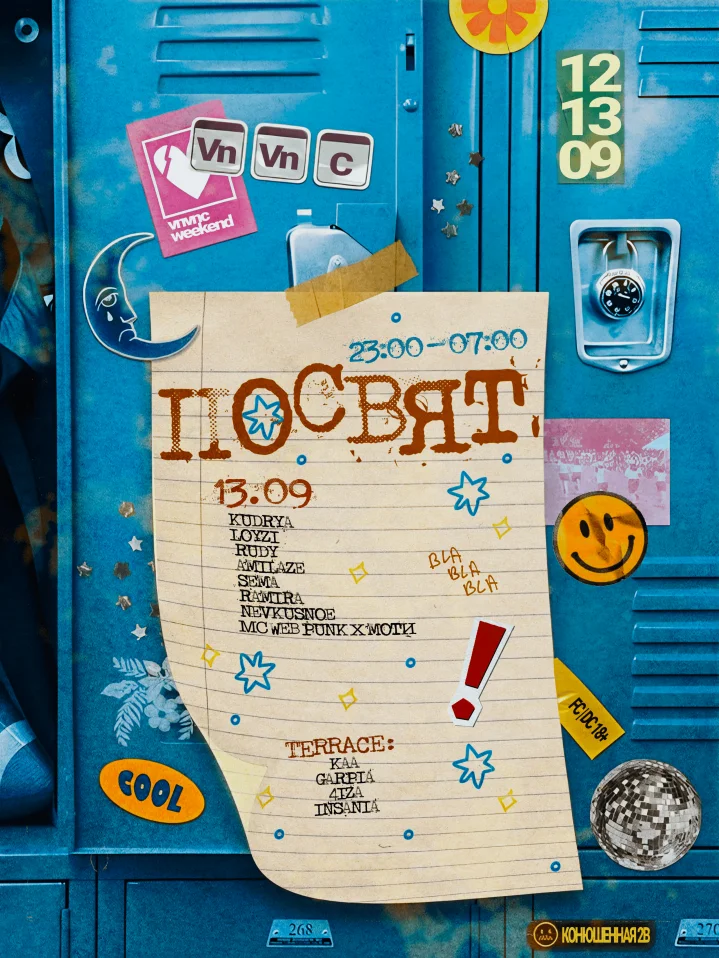 12
13
09
Vn Vn C
vnvnc
weekend
23:00–07:00
ПОСВЯТ
13.09
KUDRYA
LOYZI
RUDY
AMILAZE
SEMA
RAMIRA
NEVKUSNOE
MC WEB PUNK X MOTИ
BLA
BLA
BLA
!
FC/DC 18+
TERRACE:
KAA
GARRIA
4IZA
INSANIA
COOL
268
КОНЮШЕННАЯ 2В
270